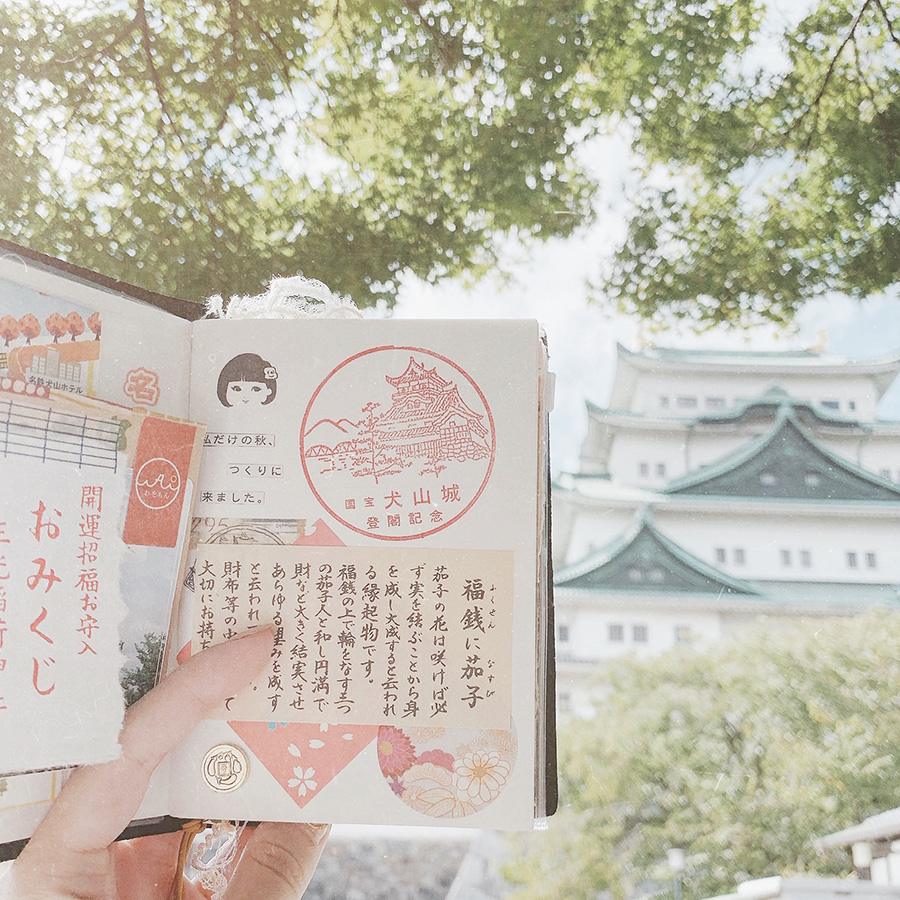 名鉄犬山ホテル
名
わをもん
開運招福お守入
おみくじ
私だけの秋、
つくりに
来ました。
国宝 犬山城
登閣記念
295
福銭に茄子
ふくせん なすび
茄子の花は咲けば必
ず実を結ぶことから身
を成し大成すると云われ
る縁起物です。
福銭の上で輪をなす三つ
の茄子人と和し円満で
財など大きく結実させ
あらゆる望みを成す
と云われ
て
財布等の中
大切にお持ち